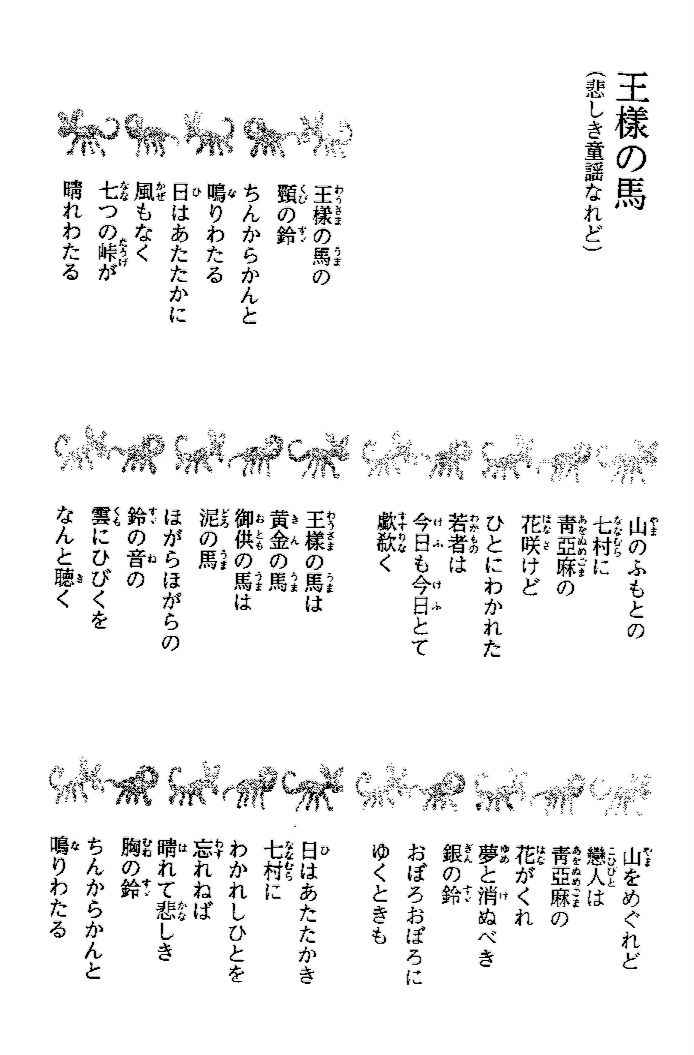 王樣の馬
(悲しき童謡なれど)
王樣の馬の
頸の鈴
ちんからかんと
鳴りわたる
日はあたたかに
風もなく
七つの峠が
晴れわたる
山のふもとの
七村に
靑亞麻の
花咲けど
ひとにわかれた
若者は
今日も今日とて
歔欷く
王樣の馬は
黄金の馬
御供の馬は
泥の馬
ほがらほがらの
鈴の音の
雲にひびくを
なんと聴く
山をめぐれど
戀人は
靑亞麻の
花がくれ
夢と消ぬべき
銀の鈴
おぼろおぼろに
ゆくときも
日はあたたかき
七村に
わかれしひとを
忘れねば
晴れて悲しき
胸の鈴
ちんからかんと
鳴りわたる